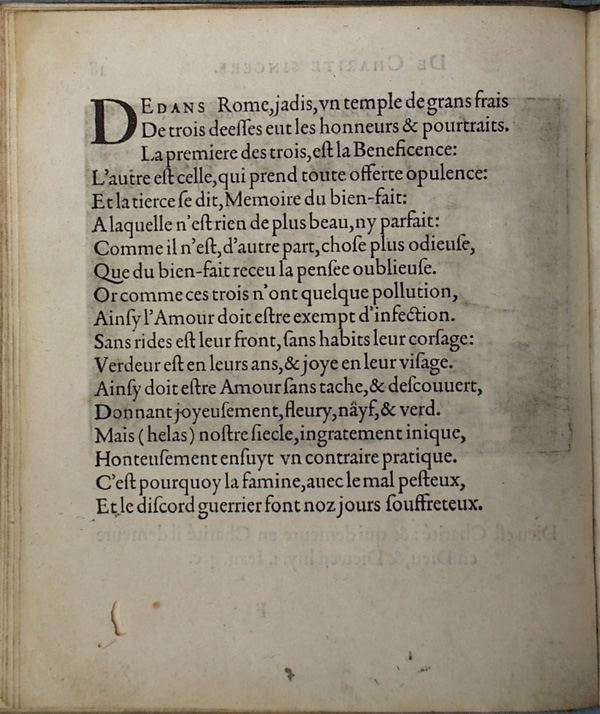 DEDANS Rome, jadis, vn temple de grans frais
De trois deeſſes eut les honneurs & pourtraits.
La premiere des trois, eſt la Beneficence:
L'autre eſt celle, qui prend toute offerte opulence:
Et la tierce ſe dit, Memoire du bien-fait:
A laquelle n'eſt rien de plus beau, ny parfait:
Comme il n'eſt, d'autre part, choſe plus odieuſe,
Que du bien-fait receu la penſee oublieuſe.
Or comme ces trois n'ont quelque pollution,
Ainſy l'Amour doit eſtre exempt d'infection.
Sans rides eſt leur front, ſans habits leur corſage:
Verdeur eſt en leurs ans, & joye en leur viſage.
Ainſy doit eſtre Amour ſans tache, & deſcouuert,
Donnant joyeuſement, fleury, nâyf, & verd.
Mais (helas) noſtre ſiecle, ingratement inique,
Honteuſement enſuyt vn contraire pratique.
C'eſt pourquoy la famine, auec le mal peſteux,
Et le diſcord guerrier font noz jours ſouffreteux.